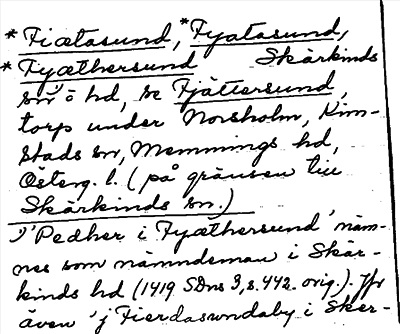 *Fiætasund, *Fyatasund,
*Fyæthersund Skärkinds
sn o hd, se Fjättersund,
torp under Norsholm, Kim-
stads sn, Memmings hd,
Österg. l. (på gränsen till
Skärkinds sn.)
"Pedher i Fyæthersund" näm-
nes som nämndeman i Skär-
kinds hd (1419 SDns 3, s. 442 orig.). Jfr
även "j Fierdasundaby i Sker-